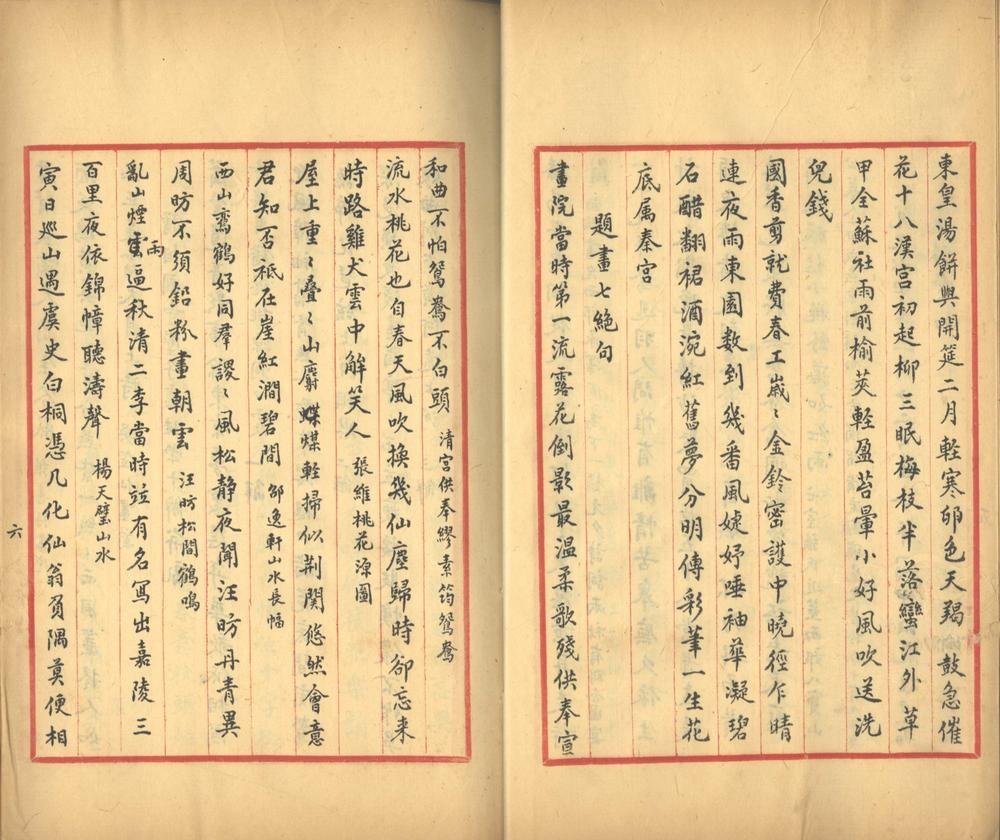 東皇湯餅與開筵二月輕寒卵色天羯鼓急催
花十八漢宮初起柳三眠梅枝半落蠻江外草
甲全蘇社雨前榆莢輕盈苔暈小好風吹送洗
兒錢
國香剪就費春工歲〻金鈴密護中曉徑乍晴
連夜雨東園數到幾番風婕妤唾袖華凝碧
石醋翻裙酒涴紅舊夢分明傳彩筆一生花
底属秦宮
題畫七絕句
畫院當時第一流露花倒影最溫柔歌殘供奉宣
和曲不怕鴛鴦不白頭 清宮供奉繆素筠鴛鴦
流水桃花也自春天風吹換幾仙塵歸時卻忘来
時路雞犬雲中解笑人 張維桃花源圖
屋上重〻叠〻山麝煤輕掃似荆関悠然會意
君知否祇在崖紅澗碧間 邹逸軒山水長幅
西山鸞鶴好同羣謖〻風松静夜聞汪昉丹青異
周昉不須鉛粉畫朝雲 汪昉松間鶴鳴
亂山煙雨逼秋清二李當時竝有名寫出嘉陵三
百里夜依錦幛聽濤聲 楊天璧山水
寅日巡山遇虞史白桐憑几化仙翁負隅莫便相
六